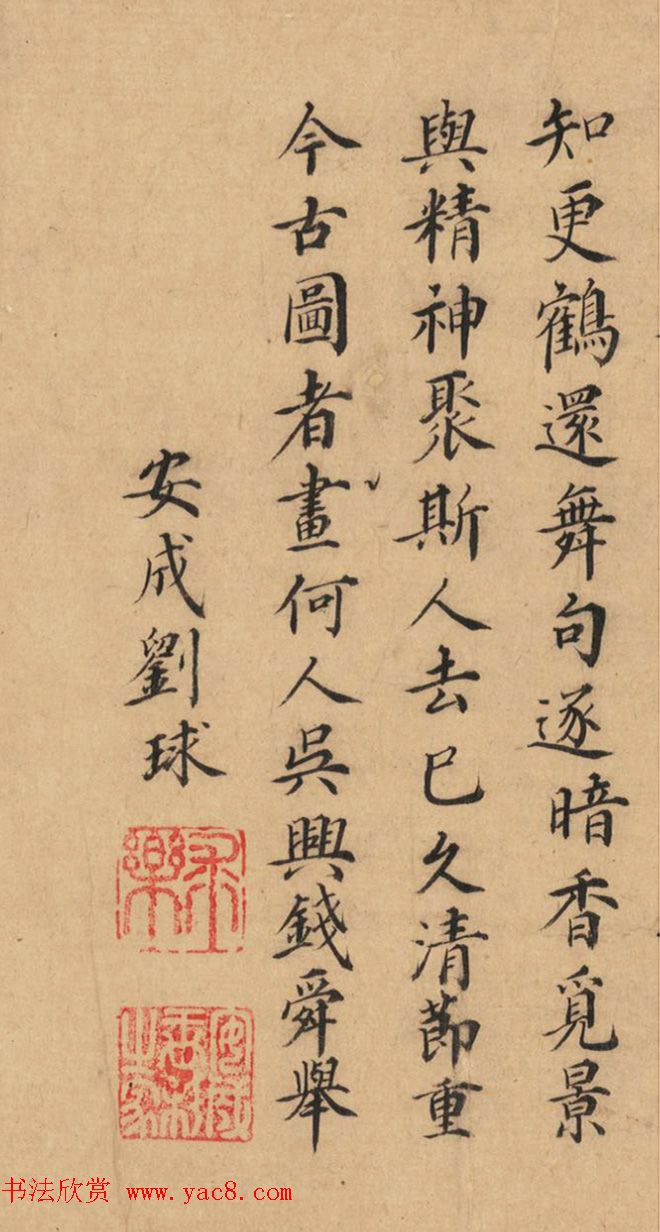 知更鶴還舞句逐暗香覓景
與精神聚斯人去已久清節重
今古圖者畫何人吳興錢舜舉
安成劉球
书法欣赏 www.yac8.com